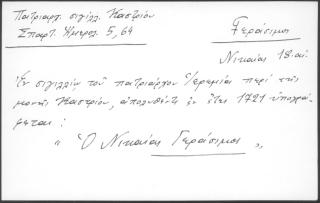 Πατριαρχ. σιγίλλ. Καστρίου
Σπαρτ. Ἡμερολ. 5, 64
Γεράσιμος
Νικαίας 18. αἰ.
Ἐν σιγιλλίῳ τοῦ πατριάρχου Ἱερεμίου περὶ τῆς
μονῆς Καστρίου, ἀπολυθέντι ἐν ἔτει 1721 ὑπογρά-
φεται:
" Ὁ Νικαίας Γεράσιμος "